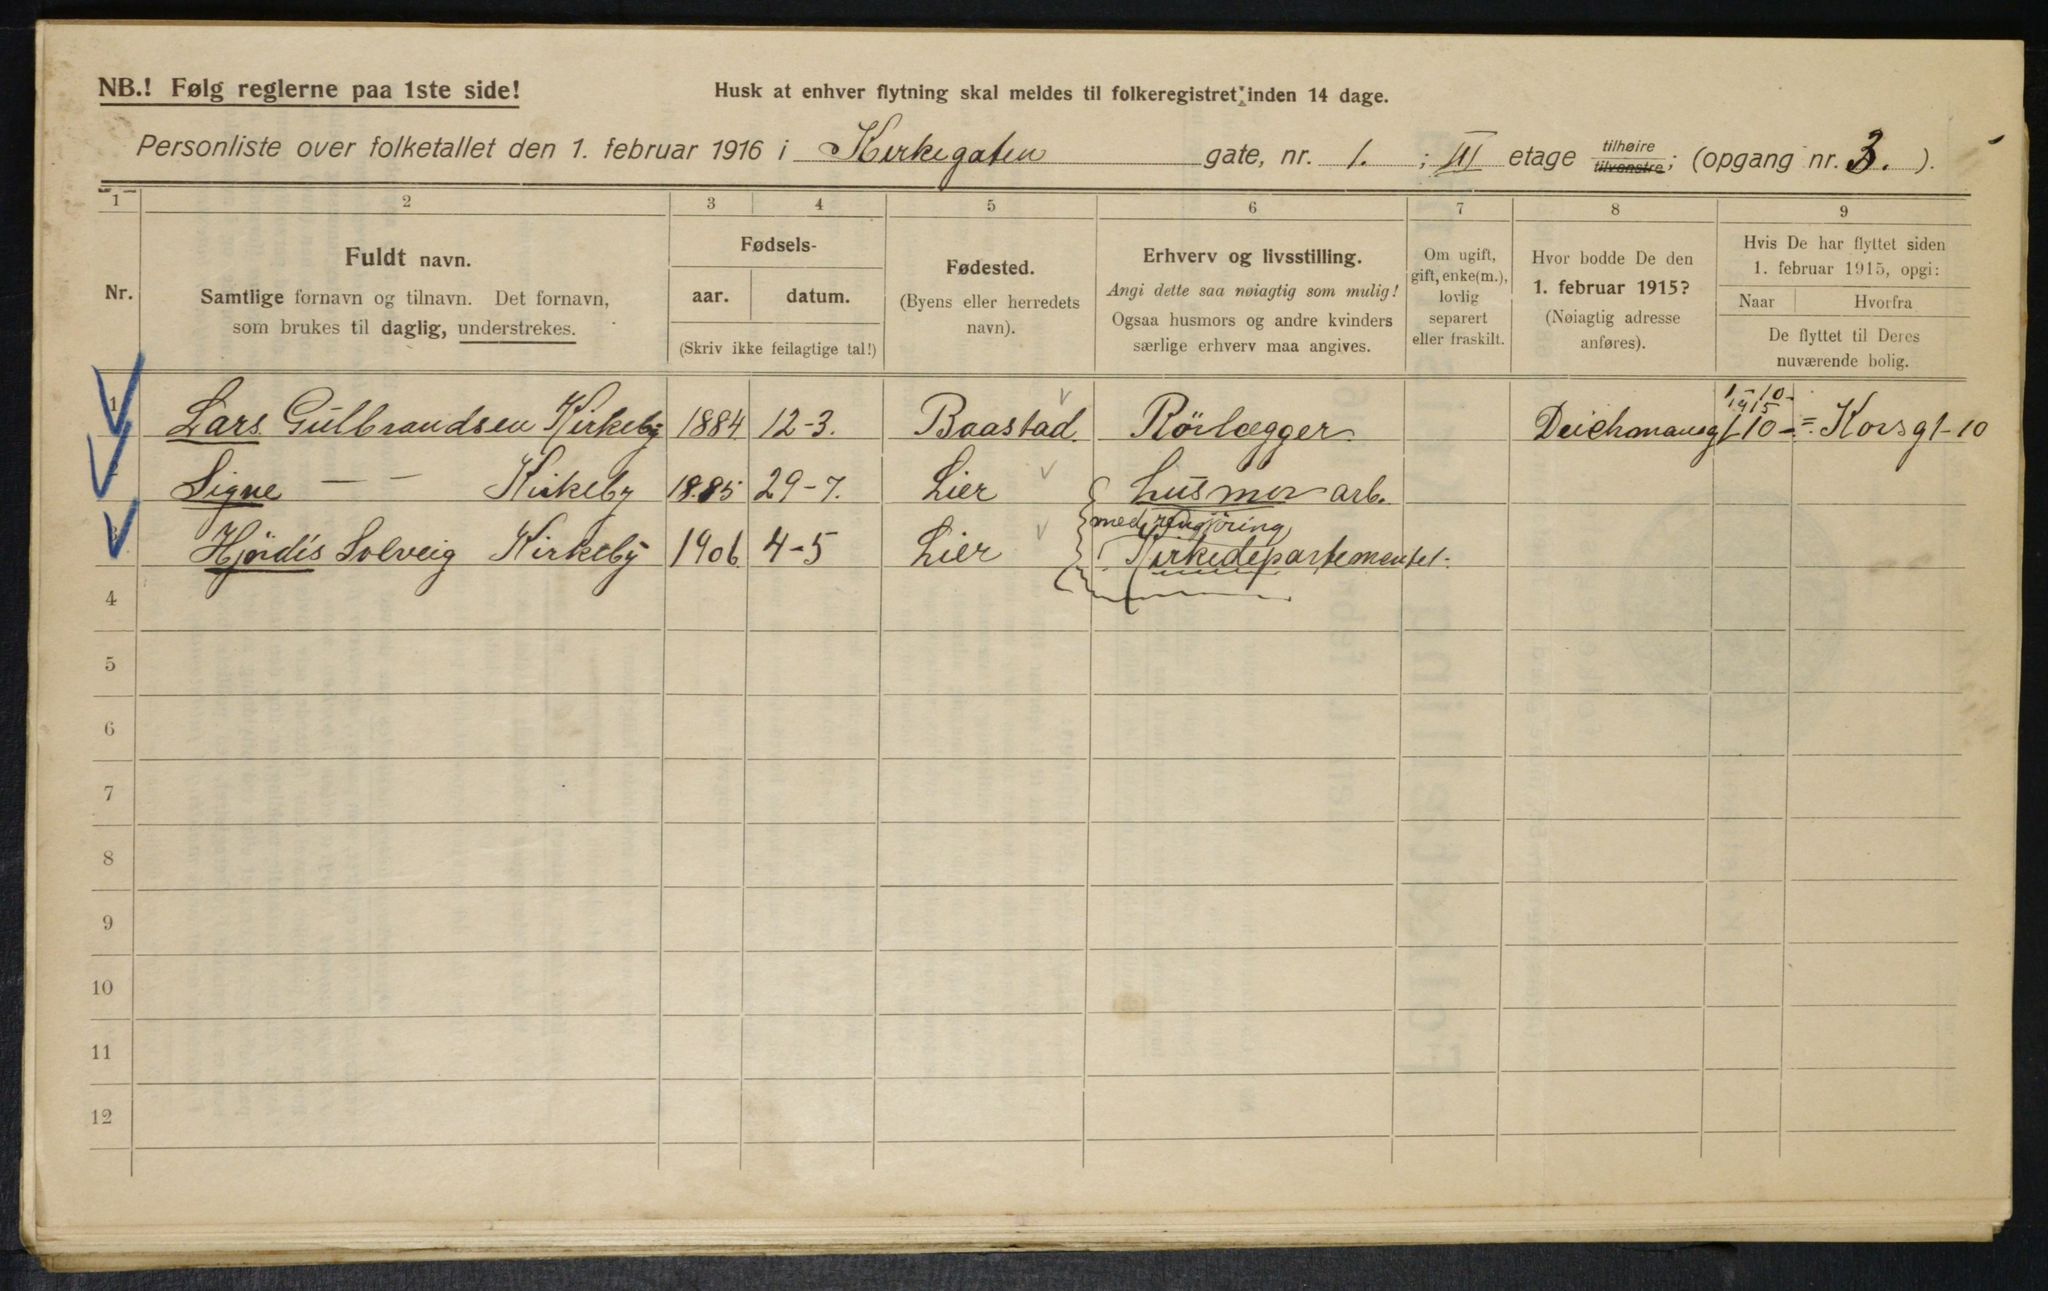 NB.! Følg reglerne paa 1ste side!
Husk at enhver flytning skal meldes til folkeregistret inden 14 dage.
Personliste over folketallet den 1. februar 1916 i Kirkegaten gate, nr. 1. ; III etage tilhøire tilvenstre; (opgang nr. 3. ).
1 2 3 4 5 6 7 8 9
Nr.
Fuldt navn.
Samtlige fornavn og tilnavn. Det fornavn,
som brukes til daglig, understrekes.
Fødsels-
aar. datum.
(Skriv ikke feilagtige tal!)
Fødested.
(Byens eller herredets
navn).
Erhverv og livsstilling.
Angi dette saa nøiagtig som mulig!
Ogsaa husmors og andre kvinders
særlige erhverv maa angives.
Om ugift,
gift, enke(m.),
lovlig
separert
eller fraskilt.
Hvor bodde De den
1. februar 1915?
(Nøiagtig adresse
anføres).
Hvis De har flyttet siden
1. februar 1915, opgi:
Naar Hvorfra
De flyttet til Deres
nuværende bolig.
1 Lars Gulbrandsen Kirkeby 1884 12-3. Baastad Rörlægger Deichmansgt 10 1-10- 1915 = Korsgt-10
2 Signe — — Kirkeby 1885 29-7. Lier husmor arb.
med rengjöring
3 Hjördis Solveig Kirkeby 1906 4-5 Lier Kirkedepartementet.
4
5
6
7
8
9
10
11
12